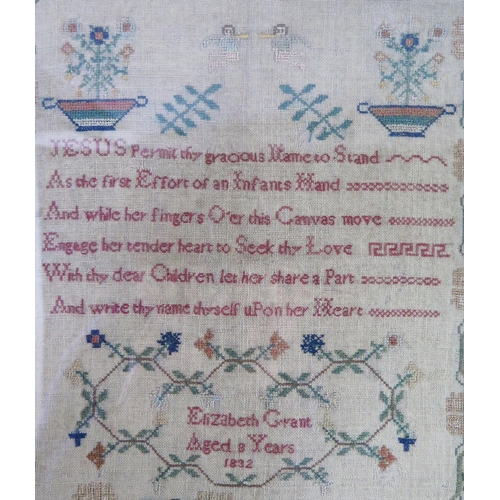 JESUS Permit thy gracious Name to Stand
As the first Effort of an Infants Hand
And while her fingers O'er this Canvas move
Engage her tender heart to Seek thy Love
With thy dear Children let her share a Part
And write thy name thyself uPon her Heart
Elizabeth Grant
Aged 8 Years
1832